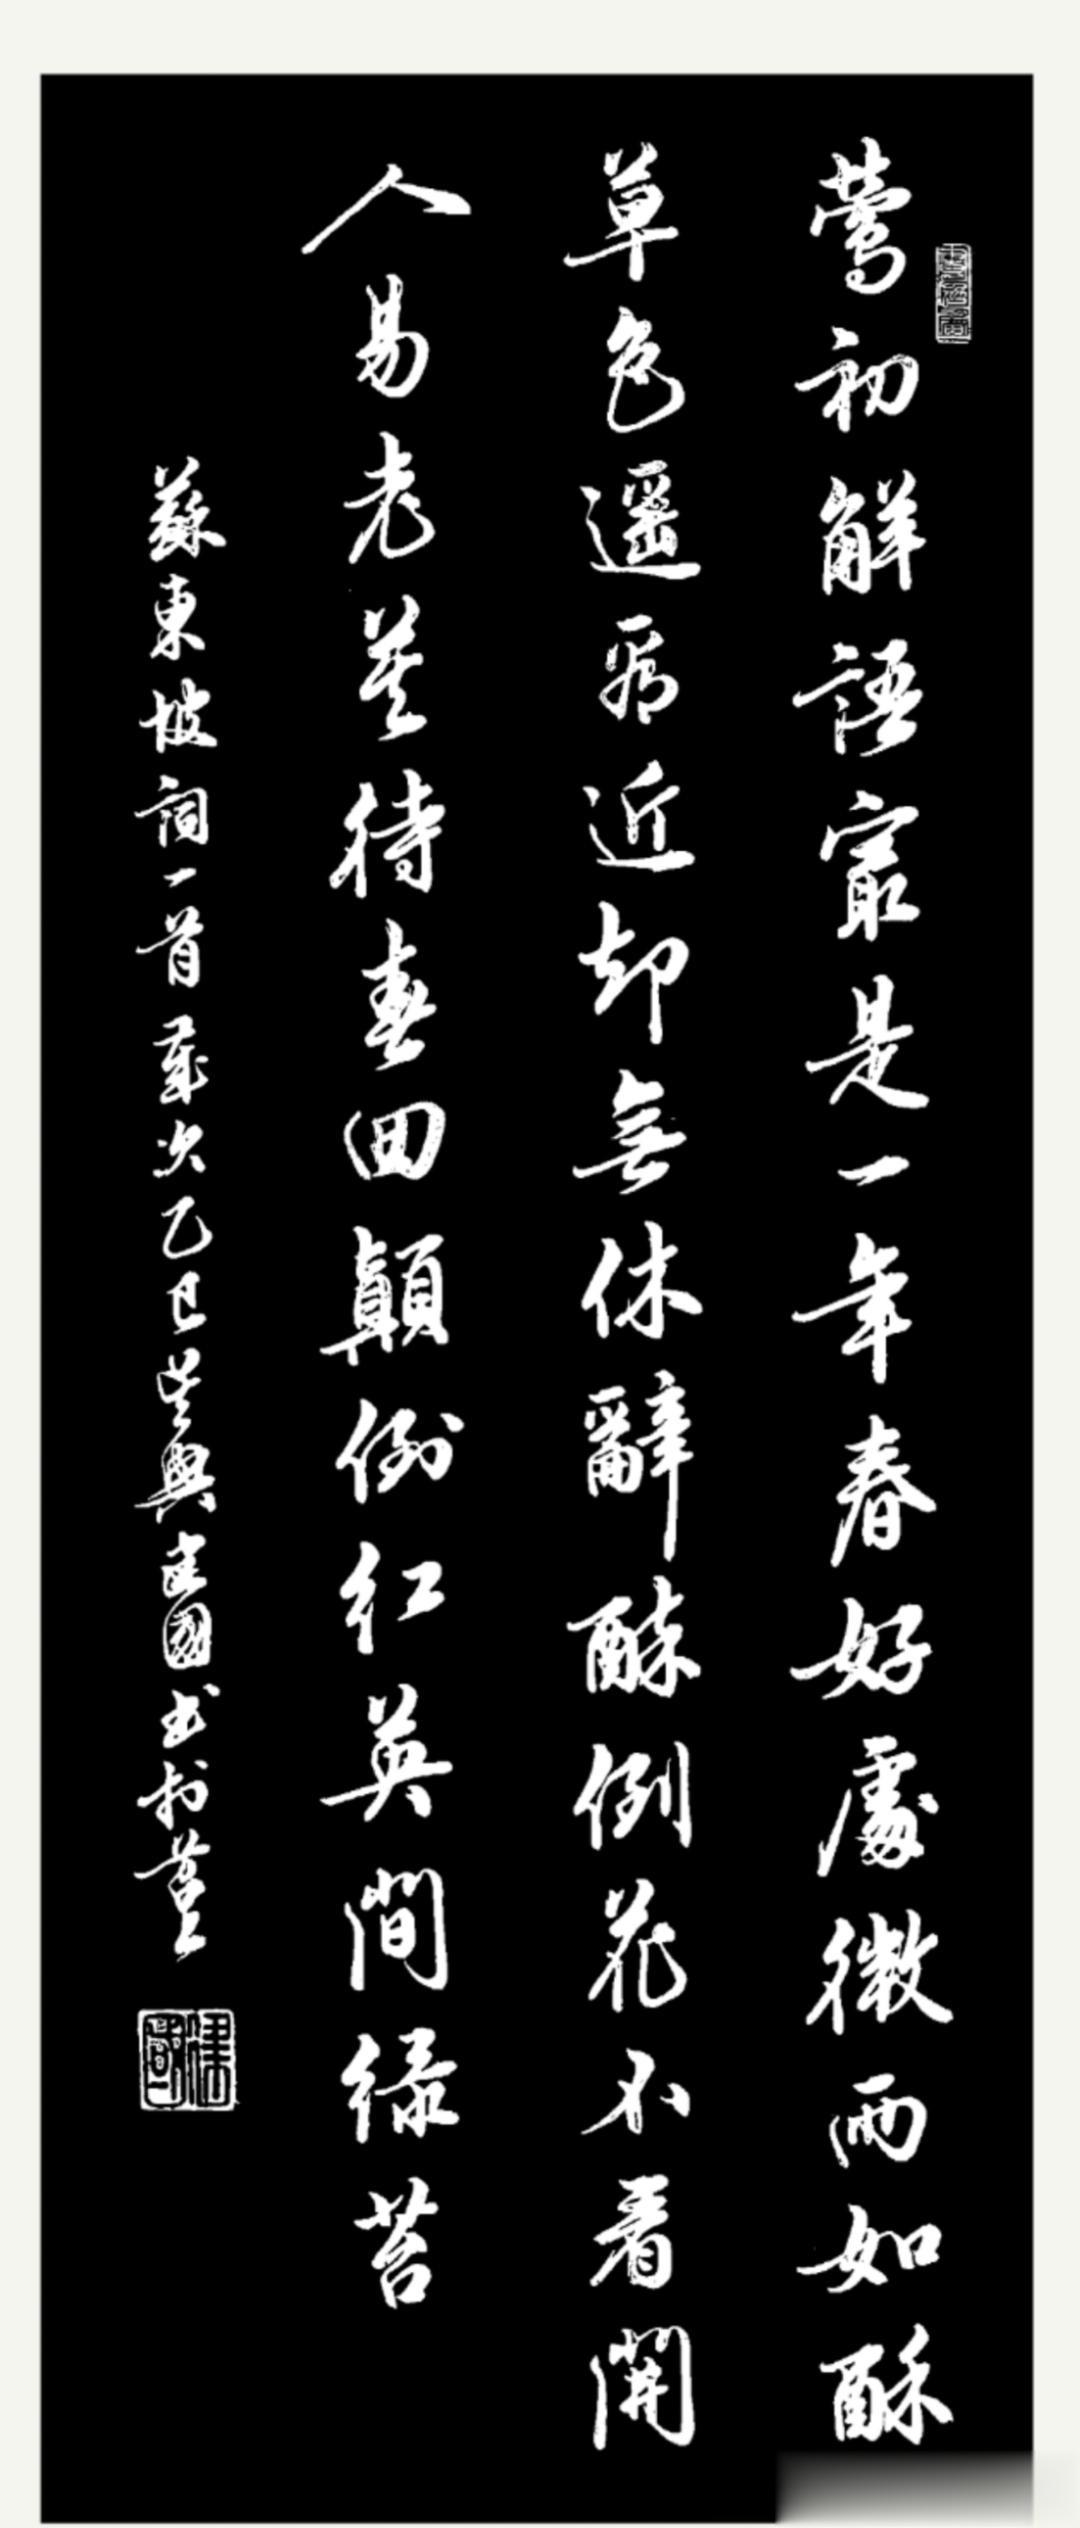 莺初解語寂是一年春好處微雨如酥
草色遥看近却無休辭醉倒花不看開
人易老莫待春回顛倒红英間绿苔
蘇東坡詞一首歲次乙巳吴興建國书於